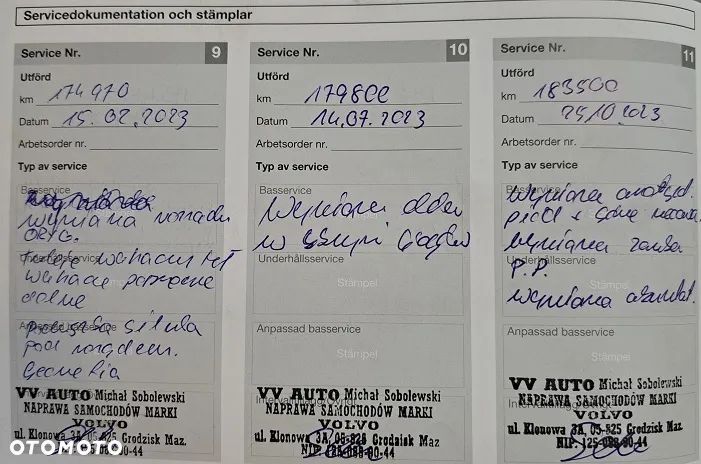 Servicedokumentation och stämplar
Service Nr. 9
Utförd
km 174970
Datum 15.02.2023
Arbetsorder nr.
Typ av service
Basservice
wymiana
tylne wahacze
wahacze poprzeczne
dolne
Anpassad basservice
poduszka silnika
pod
Geometria
VV AUTO Michał Sobolewski
NAPRAWA SAMOCHODÓW MARKI
VOLVO
ul. Klonowa 3A, 05-825 Grodzisk Maz.
Service Nr. 10
Utförd
km 179800
Datum 14.07.2023
Arbetsorder nr.
Typ av service
Basservice
Wymiana oleju
w skrzyni
Underhållsservice
Stämpel
Anpassad basservice
Stämpel
VV AUTO Michał Sobolewski
NAPRAWA SAMOCHODÓW MARKI
VOLVO
ul. Klonowa 3A, 05-825 Grodzisk Maz
NIP. 125-088-80-44
Service Nr. 11
Utförd
km 183500
Datum 25/10.2023
Arbetsorder nr.
Typ av service
Basservice
Wymiana
Wymiana
Underhållsservice
P.P.
Wymiana
Anpassad basservice
Stämpel
VV AUTO Michał Sobolewski
NAPRAWA SAMOCHODÓW MARKI
VOLVO
ul. Klonowa 3A, 05-825 Grodzisk Maz.
NIP. 125-088-80-44
OTOMOTO